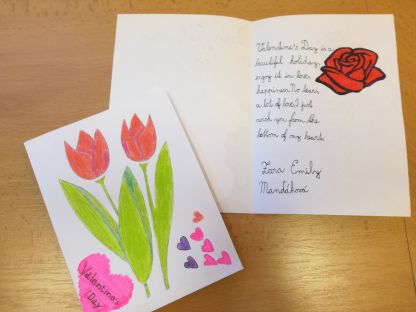 Valentine's Day is a
beautiful holiday,
enjoy it in love,
happiness. No tears,
a lot of love I just
wish you from the
bottom of my heart.
Zara Emily
Mandáková
Valentine's
Day